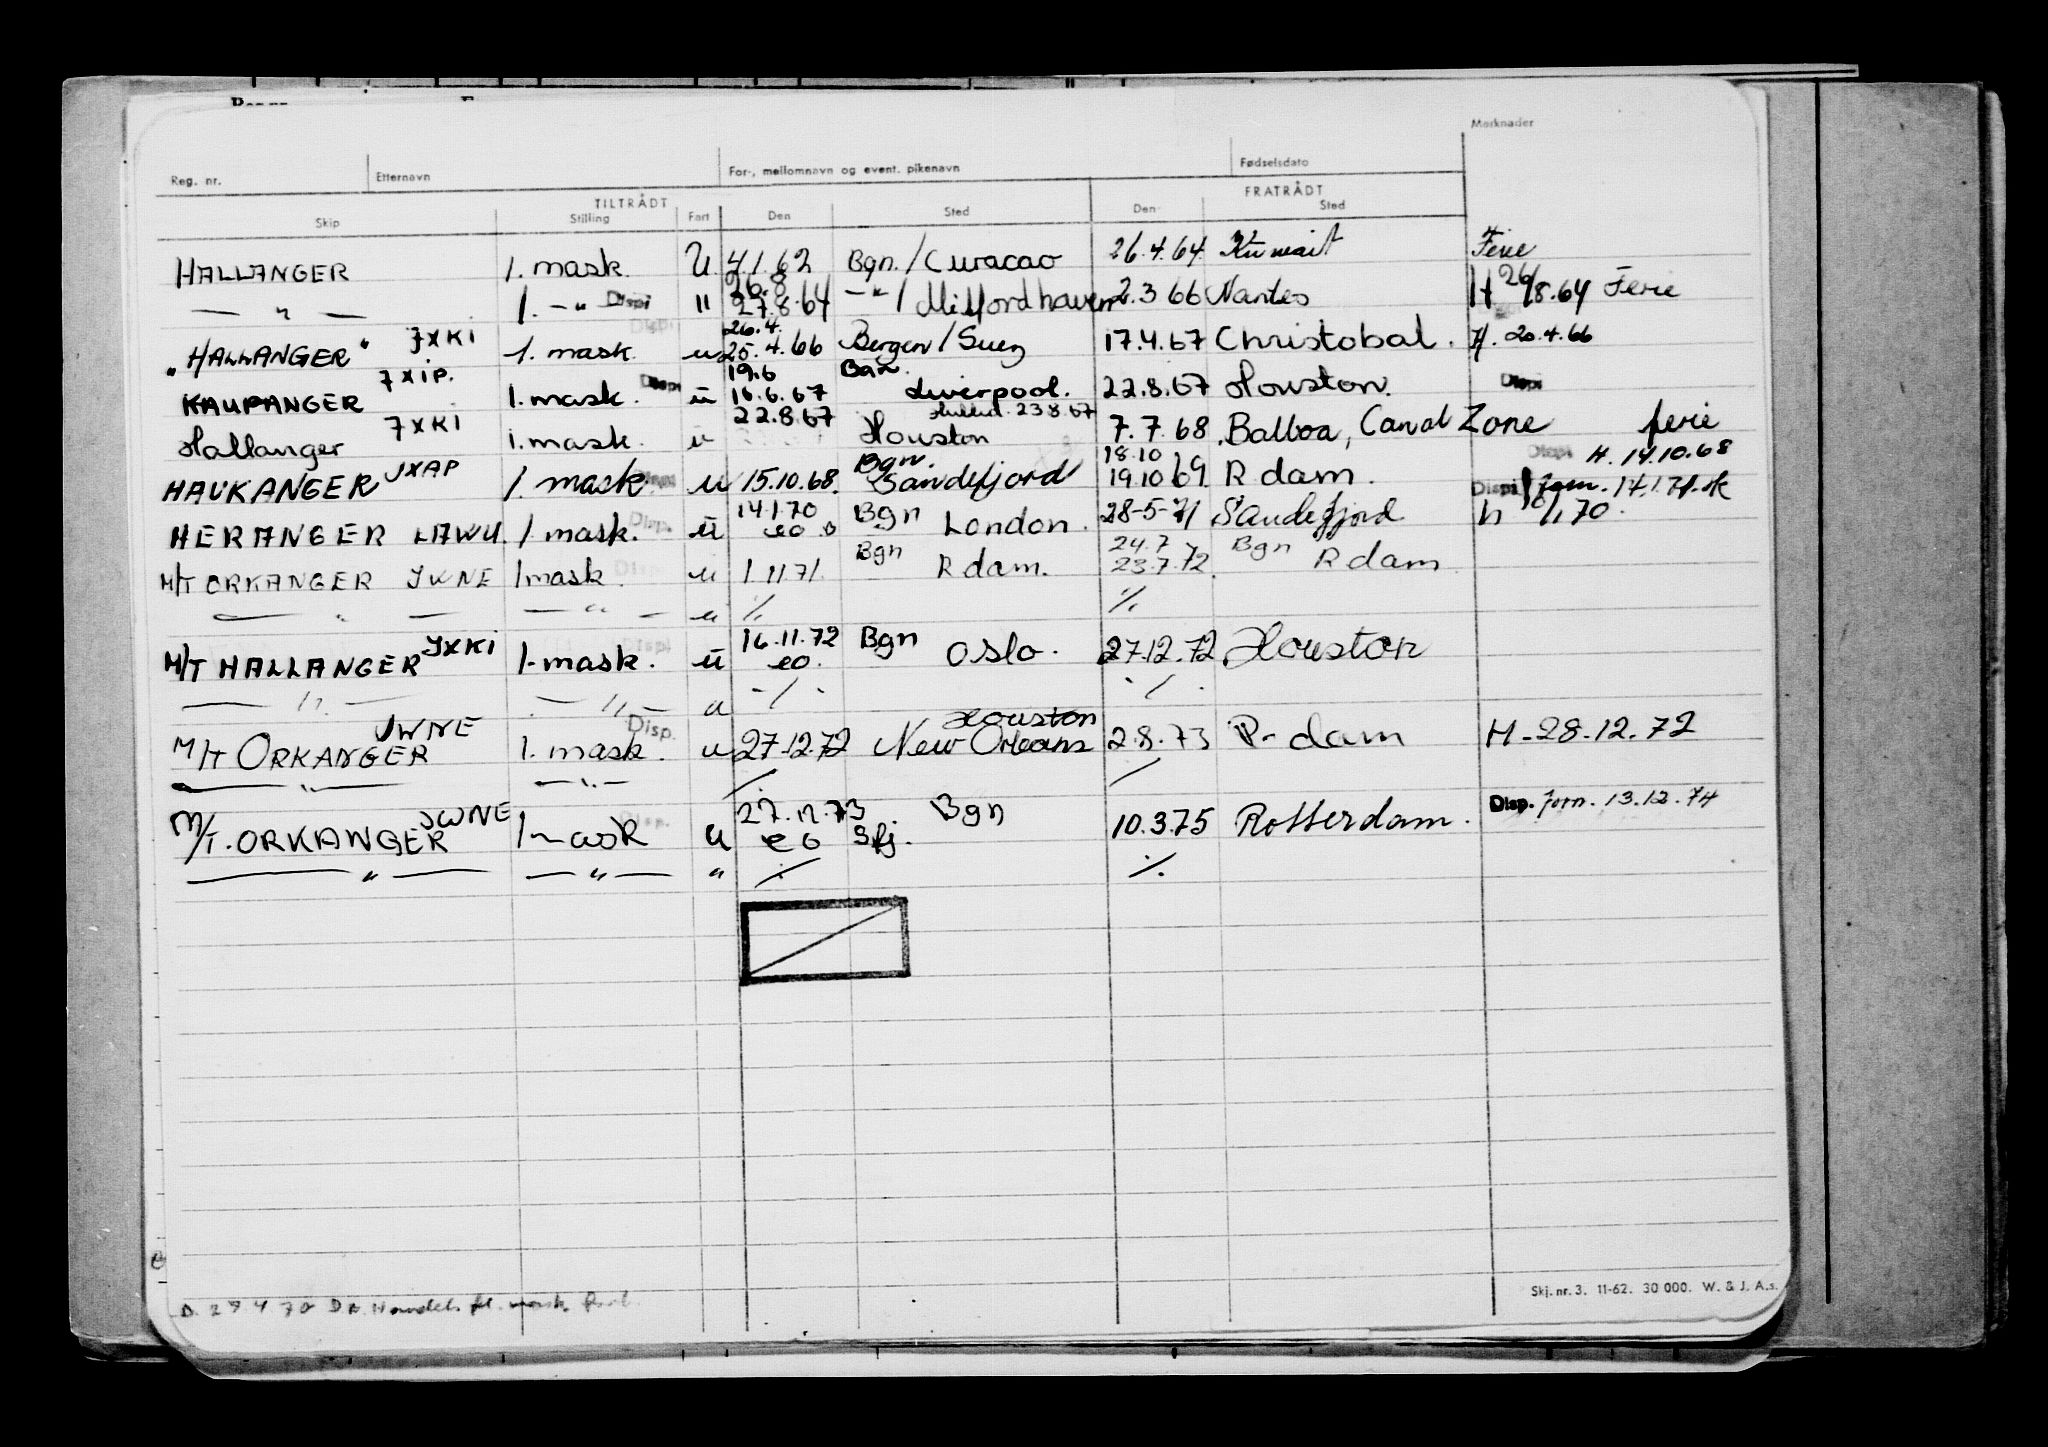 Merknader
Reg. nr. Etternavn For-, mellomnavn og event. pikenavn Fødselsdato
TILTRÅDT FRATRÅDT
Skip Stilling Fart Den Sted Den Sted
HALLANGER 1. mask. U 4.1.62 Bgn. / Curacao 26.4.64 Kuwait Ferie
— " — 1. — " Disp. " 26.8 27.8.64 — " — / Milfordhaven 2.3 66 Nantes H 26/8.64 Ferie
"HALLANGER" JXKI 1. mask. u 26.4. 25.4.66 Bergen / Suez 17.4.67 Christobal. H. 20.4.66
KAUPANGER JXIP. 1. mask. Disp u 19.6 16.6.67 Liverpool. 22.8.67 Houston. Disp
Hallanger JXKI 1. mask. u 22.8.67 Houston 23 8.67 7.7.68 Balboa, Canal Zone ferie
HAUKANGER JXAP 1. mask. Disp u 15.10.68. Bgn. Sandefjord 18.10 19.10 69. R dam. Disp H. 14.10.68
HERANGER LAWU. 1. mask. Disp. u 14.1.70 eo. Bgn London. 28-5-71 Sandefjord Disp forn. 14.1.71. ok
h 10/1.70.
M/T ORKANGER JWNE 1 mask. Disp u 1.11.71. Bgn R dam. 24.7 23.7.72. Bgn R dam
— " — — " — u ⁒ ⁒
M/T HALLANGER JXKI 1. mask. Disp u 16.11.72 eo. Bgn Oslo. 27.12.72 Houston
— " — — " — u ⁒ ⁒
M/T ORKANGER JWNE 1. mask. Disp. u 27.12.72 Houston New Orleans 2.8.73 R-dam H-28-12.72
— " — — " — ⁒ ⁒
M/T. ORKANGER JWNE 1 mask Disp. u 27.12.73. eo Bgn Sfj. 10.3.75 Rotterdam. Disp. forn. 13.12.74
— " — — " — " ⁒ ⁒
Skj. nr. 3. 11-62. 30 000. W. & J. A.s.